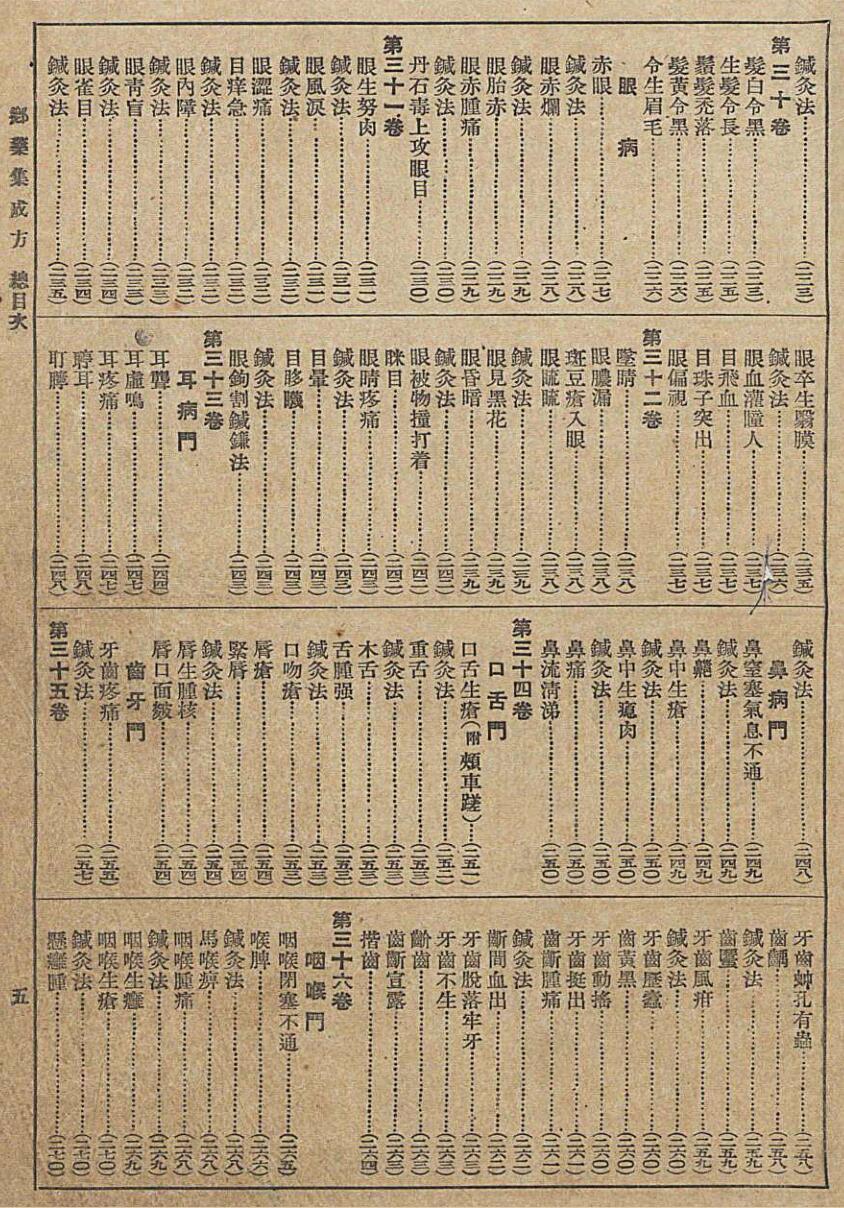 鍼灸法…(二二三)
第三十卷
髮白令黑…(二二三)
生髮令長…(二二五)
鬚髮禿落…(二二五)
髮黃令黑…(二二六)
令生眉毛…(二二六)
眼病
赤眼…(二二七)
鍼灸法…(二二八)
眼赤爛…(二二八)
鍼灸法…(二二九)
眼胎赤…(二二九)
眼赤腫痛…(二二九)
鍼灸法…(二三〇)
丹石毒上攻眼目…(二三〇)
第三十一卷
眼生努肉…(二三一)
鍼灸法…(二三一)
眼風淚…(二三一)
鍼灸法…(二三二)
眼澀痛…(二三二)
目痒急…(二三二)
鍼灸法…(二三三)
眼內障…(二三三)
鍼灸法…(二三三)
眼靑盲…(二三三)
鍼灸法…(二三四)
眼雀目…(二三四)
鍼灸法…(二三五)
眼卒生翳膜…(二三五)
鍼灸法…(二三六)
眼血灌瞳人…(二三七)
目飛血…(二三七)
目珠子突出…(二三七)
眼偏視…(二三七)
第三十二卷
墜睛…(二三八)
眼膿漏…(二三八)
斑豆瘡入眼…(二三八)
眼䀮䀮…(二三八)
鍼灸法…(二三九)
眼見黑花…(二三九)
眼昏暗…(二三九)
鍼灸法…(二四二)
眼被物撞打着…(二四二)
眯目…(二四二)
眼睛疼痛…(二四三)
鍼灸法…(二四三)
目暈…(二四三)
目眵䁾…(二四三)
鍼灸法…(二四三)
眼鉤割鍼鎌法…(二四三)
第三十三卷
耳病門
耳聾…(二四四)
耳虛鳴…(二四七)
耳疼痛…(二四七)
聤耳…(二四八)
耵聹…(二四八)
鍼灸法…(二四八)
鼻病門
鼻窒塞氣息不通…(二四九)
鍼灸法…(二四九)
鼻齆…(二四九)
鼻中生瘡…(二四九)
鍼灸法…(二五〇)
鼻中生瘜肉…(二五〇)
鍼灸法…(二五〇)
鼻痛…(二五〇)
鼻流清涕…(二五〇)
第三十四卷
口舌門
口舌生瘡(附 頰車蹉)…(二五一)
鍼灸法…(二五二)
重舌…(二五三)
鍼灸法…(二五三)
木舌…(二五三)
舌腫强…(二五三)
鍼灸法…(二五三)
口吻瘡…(二五三)
脣瘡…(二五四)
緊脣…(二五四)
鍼灸法…(二五四)
脣生腫核…(二五四)
脣口面皴…(二五四)
齒牙門
牙齒疼痛…(二五五)
鍼灸法…(二五七)
第三十五卷
牙齒蚛孔有蟲…(二五八)
齒齲…(二五八)
鍼灸法…(二五九)
齒䘌…(二五九)
牙齒風疳…(二五九)
鍼灸法…(二六〇)
牙齒歷蠹…(二六〇)
齒黃黑…(二六〇)
牙齒動搖…(二六〇)
牙齒挺出…(二六一)
齒齗腫痛…(二六一)
鍼灸法…(二六二)
齗間血出…(二六二)
牙齒脫落牢牙…(二六三)
牙齒不生…(二六三)
齘齒…(二六三)
齒齗宣露…(二六三)
揩齒…(二六四)
第三十六卷
咽喉門
咽喉閉塞不通…(二六五)
喉脾…(二六六)
鍼灸法…(二六八)
馬喉痹…(二六八)
咽喉腫痛…(二六八)
鍼灸法…(二六九)
咽喉生癰…(二六九)
咽喉生瘡…(二七〇)
鍼灸法…(二七〇)
懸癰腫…(二七〇)
鄕藥集成方 總目次
五